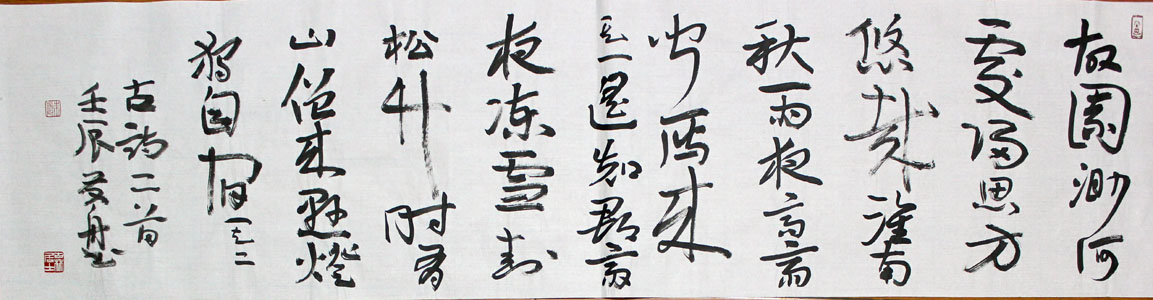 故園渺何
處歸思方
悠哉淮南
秋雨夜高齋
聞雁來
其一遥知郡齋
夜凍雪封
松竹时有
山僧來懸燈
獨自宿其二
古詩二首
壬辰舟書